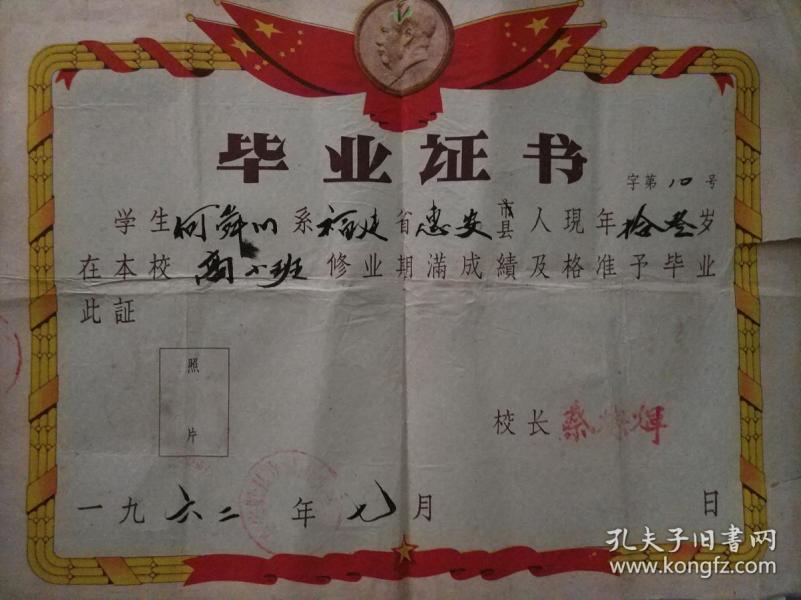 毕业证书
字第10号
学生何舜川系福建省惠安市县人現年拾叁岁
在本校高小班修业期滿成績及格准予毕业
此証
照
片
校长蔡 輝
一九六二年七月 日
孔夫子旧书网
www.kongfz.com